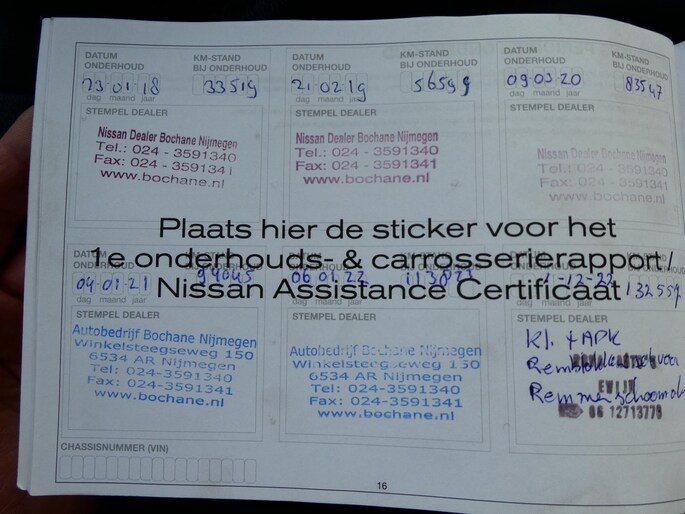 DATUM ONDERHOUD
KM-STAND BIJ ONDERHOUD
23 01 18
33519
dag maand jaar
STEMPEL DEALER
Nissan Dealer Bochane Nijmegen
Tel.: 024 - 3591340
Fax: 024 - 3591341
www.bochane.nl
DATUM ONDERHOUD
KM-STAND BIJ ONDERHOUD
21 02 19
56599
dag maand jaar
STEMPEL DEALER
Nissan Dealer Bochane Nijmegen
Tel.: 024 - 3591340
Fax: 024 - 3591341
www.bochane.nl
DATUM ONDERHOUD
KM-STAND BIJ ONDERHOUD
09 03 20
83547
dag maand jaar
STEMPEL DEALER
Nissan Dealer Bochane Nijmegen
Tel.: 024 - 3591340
Fax: 024 - 3591341
www.bochane.nl
Plaats hier de sticker voor het
1e onderhouds- & carrosserierapport /
Nissan Assistance Certificaat
DATUM ONDERHOUD
04 01 21
94045
dag maand jaar
STEMPEL DEALER
Autobedrijf Bochane Nijmegen
Winkelsteegseweg 150
6534 AR Nijmegen
Tel: 024-3591340
Fax: 024-3591341
www.bochane.nl
06 01 22
dag maand jaar
STEMPEL DEALER
Autobedrijf Bochane Nijmegen
Winkelsteegseweg 150
6534 AR Nijmegen
Tel: 024-3591340
Fax: 024-3591341
www.bochane.nl
1-12-22
132559
dag maand jaar
STEMPEL DEALER
Kl. + APK
EWIJK
06 12713779
CHASSISNUMMER (VIN)
16